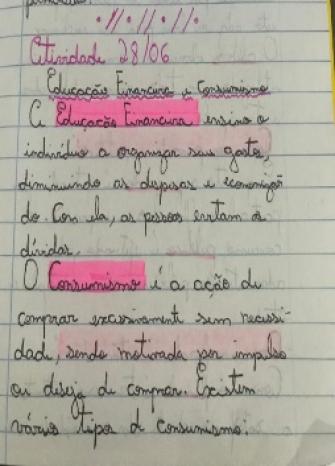 Atividade 28/06
Educação Financeira e Consumismo
A Educação Financeira ensina o
indivíduo a organizar seus gastos,
diminuindo as despesas e economizan
do. Com ela, as pessoas evitam as
dívidas.
O Consumismo é a ação de
comprar excessivamente sem necessi-
dade, sendo motivada por impulso
ou desejo de comprar. Existem
vários tipos de consumismo: